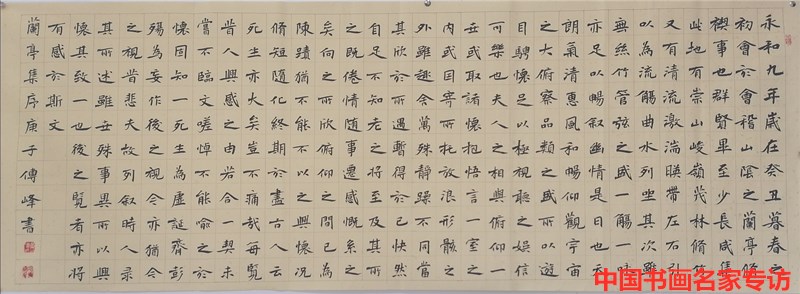 永和九年歲在癸丑暮春之
初會於會稽山陰之蘭亭脩
禊事也群賢畢至少長咸集
此地有崇山峻嶺茂林脩竹
又有清流激湍暎帶左右引
以為流觴曲水列坐其次雖
無絲竹管弦之盛一觴一詠
亦足以暢敘幽情是日也天
朗氣清惠風和暢仰觀宇宙
之大俯察品類之盛所以遊
目騁懷足以極視聽之娛信
可樂也夫人之相與俯仰一
世或取諸懷抱悟言一室之
內或因寄所託放浪形骸之
外雖趣舍萬殊靜躁不同當
其欣於所遇暫得於己快然
自足不知老之將至及其所
之既倦情隨事遷感慨系之
矣向之所欣俯仰之間已為
陳蹟猶不能不以之興懷況
脩短隨化終期於盡古人云
死生亦大矣豈不痛哉每覽
昔人興感之由若合一契未
嘗不臨文嗟悼不能喻之於
懷固知一死生為虛誕齊彭
殤為妄作後之視今亦猶今
之視昔悲夫故列敘時人錄
其所述雖世殊事異所以興
懷其致一也後之覽者亦將
有感於斯文
蘭亭集序庚子傅峰書
中国书画名家专访